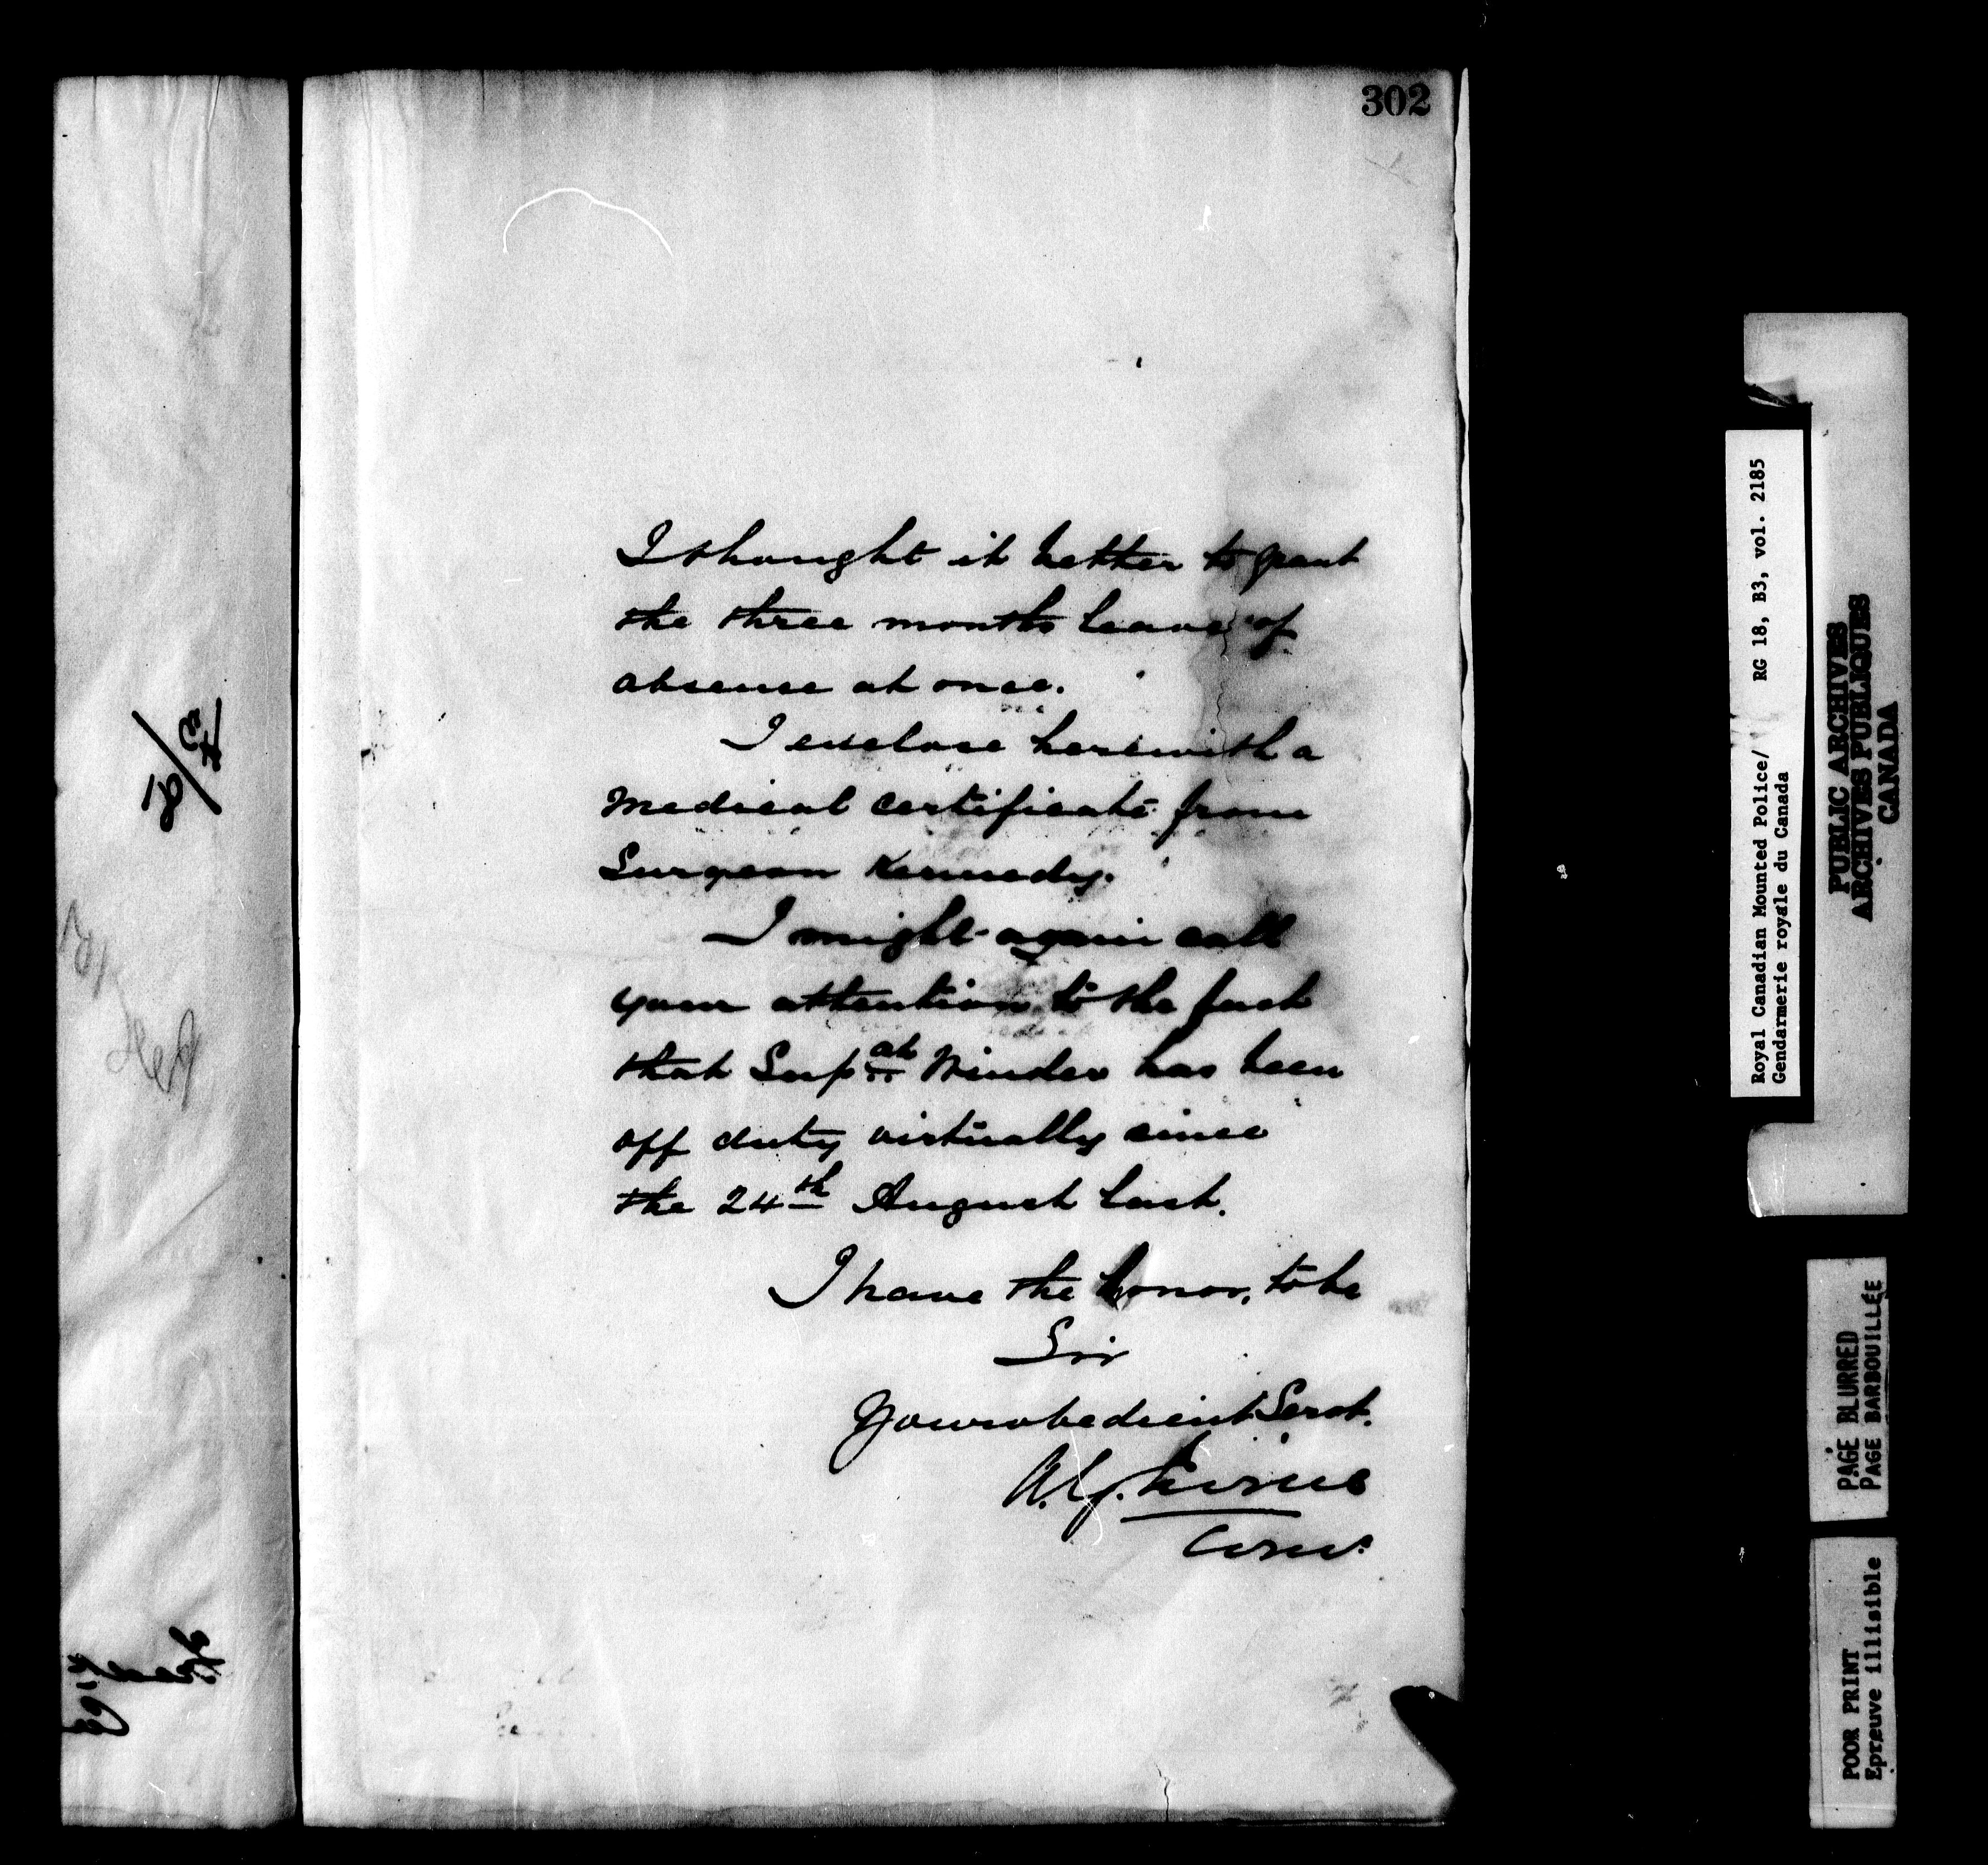 302
I thought it better to grant
the three months leave of
absense at once.
I enclose herewith a
Medical certificate from
Surgeon Kennedy.
I might again call
your attention to the fact
that Sup at Winder has been
off duty virtually since
the 24th August last.
I have the honor, to be
Sir
Your obedient Servt.
A.G. Irvine
Comr.
Royal Canadian Mounted Police/ RG 18, B3, vol. 2185
Gendarmerie royale du Canada
PUBLIC ARCHIVES
ARCHIVES PUBLIQUES
CANADA
PAGE BLURRED
PAGE BARBOUILLÉE
POOR PRINT
Epreuve illisible